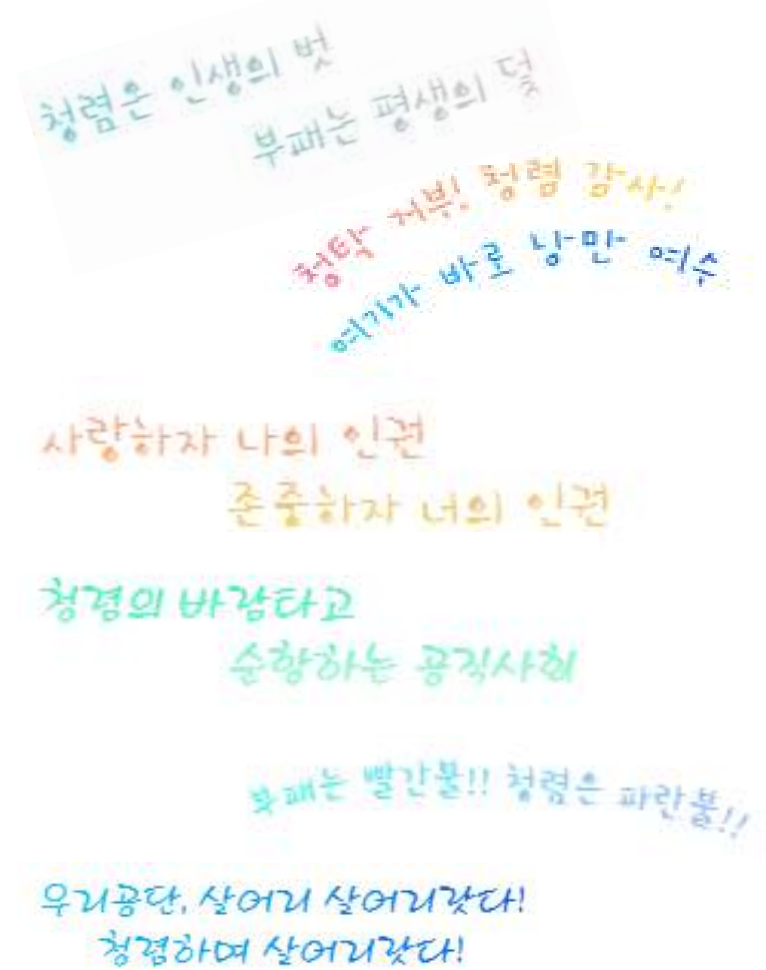 청렴은 인생의 벗
부패는 평생의 덫
청탁 거부! 청렴 감사!
여기가 바로 낭만 여수
사랑하자 나의 인권
존중하자 너의 인권
청렴의 바람타고
순항하는 공직사회
부패는 빨간불!! 청렴은 파란불!!
우리공단, 살어리 살어리랏다!
청렴하며 살어리랏다!